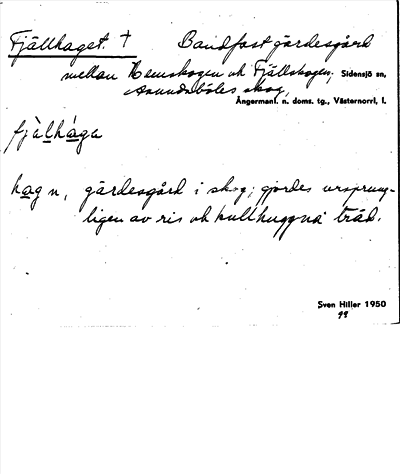 Fjällhaget. † Bandfast gärdesgård
mellan Hemskogen och Fjällskogen, Sidensjö sn,
Anundsböles skog,
Ångermanl. n. doms. tg., Västernorrl, l.
fjälhága
hag n, gärdesgård i skog; gjordes ursprung-
ligen av ris och kullhuggna träd.
Sven Hiller 1950